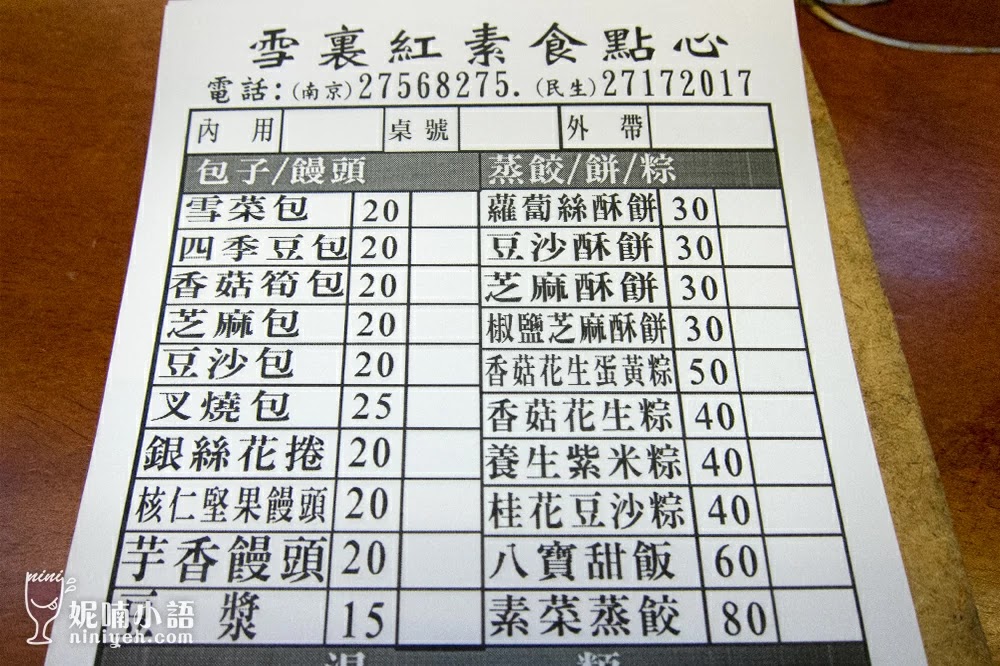 雪裏紅素食點心
電話:(南京)27568275. (民生)27172017
內用 桌號 外帶
包子/饅頭 蒸餃/餅/粽
雪菜包 20 蘿蔔絲酥餅 30
四季豆包 20 豆沙酥餅 30
香菇筍包 20 芝麻酥餅 30
芝麻包 20 椒鹽芝麻酥餅 30
豆沙包 20 香菇花生蛋黃粽 50
叉燒包 25 香菇花生粽 40
銀絲花捲 20 養生紫米粽 40
核仁堅果饅頭 20 桂花豆沙粽 40
芋香饅頭 20 八寶甜飯 60
漿 15 素菜蒸餃 80
nini
妮喃小語
niniyeh.com